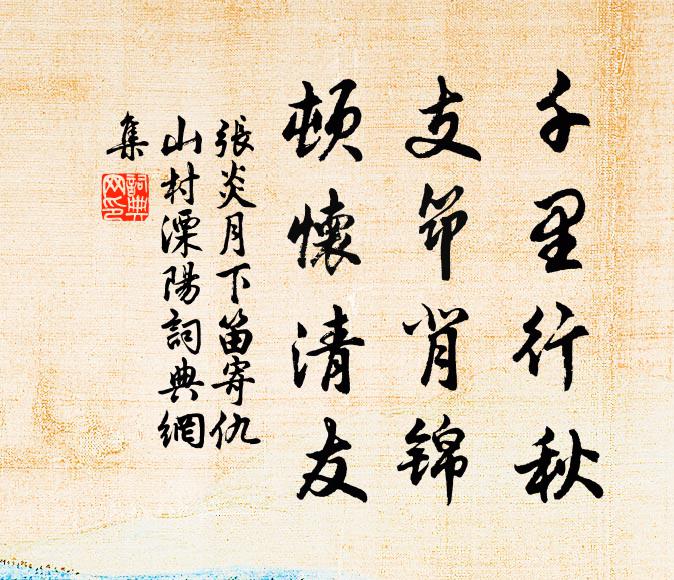 千里行秋
支筇背锦
頓懷清友
張炎月下笛寄仇
山村溧陽詞典網
集
詞典網印